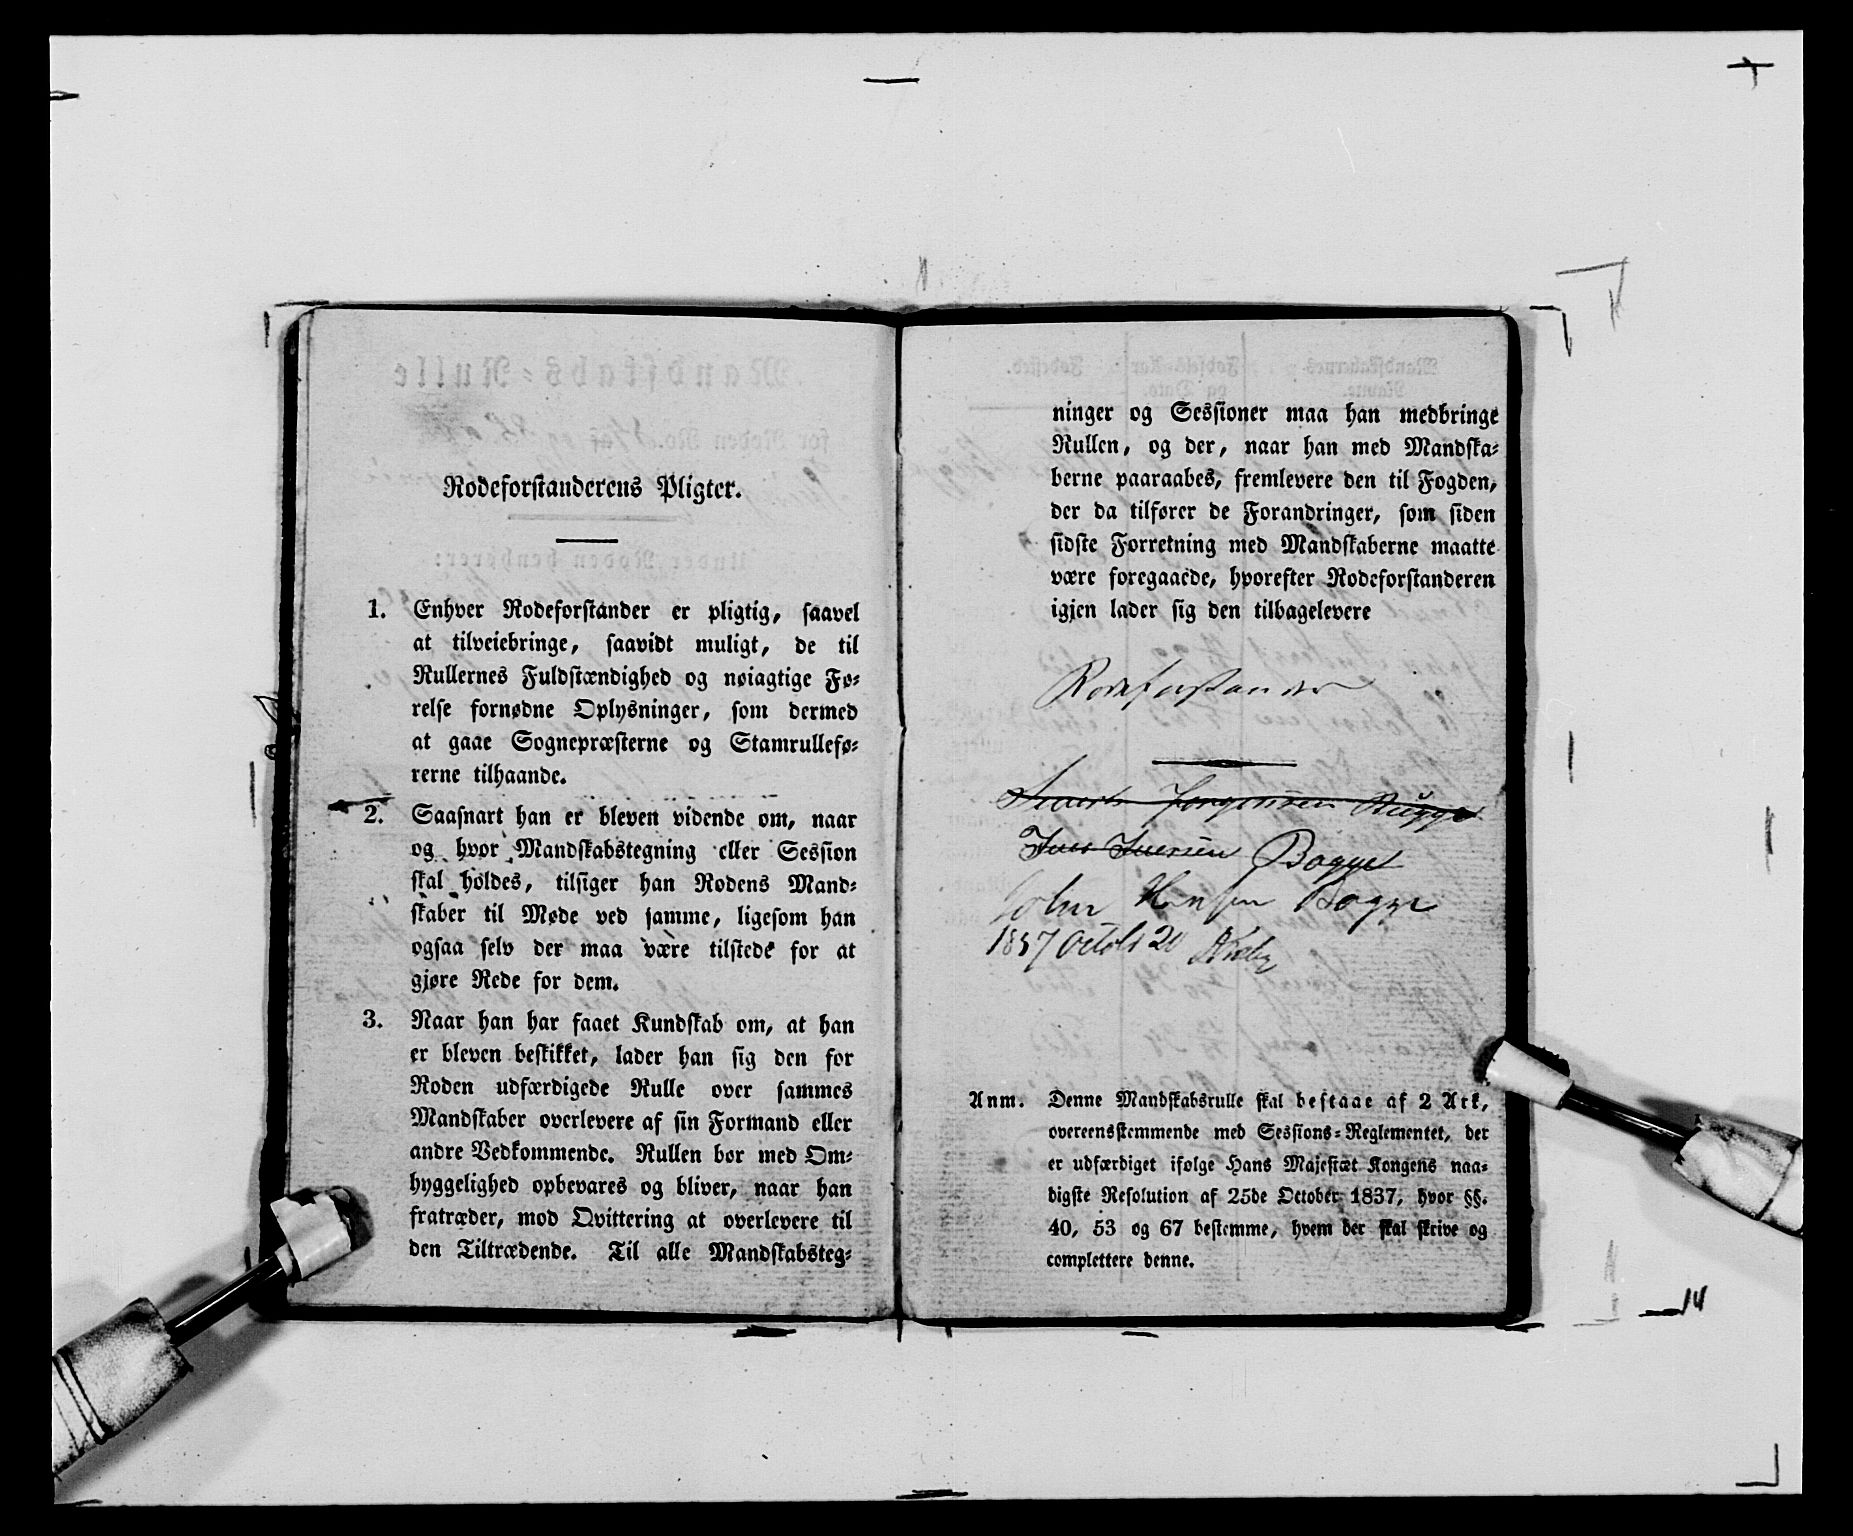 Rodeforstanderens Pligter.
1. Enhver Rodeforstander er pligtig, saavel
at tilveiebringe, saavidt muligt, de til
Rullernes Fuldstændighed og nøiagtige Fø-
relse fornødne Oplysninger, som dermed
at gaae Sognepræsterne og Stamrullefø-
rerne tilhaande.
2. Saasnart han er bleven vidende om, naar
og hvor Mandskabstegning eller Session
skal holdes, tilsiger han Rodens Mand-
skaber til Møde ved samme, ligesom han
ogsaa selv der maa være tilstede for at
gjøre Rede for dem.
3. Naar han har faaet Kundskab om, at han
er bleven beskikket, lader han sig den for
Roden udfærdigede Rulle over sammes
Mandskaber overlevere af sin Formand eller
andre Vedkommende. Rullen bør med Om-
hyggelighed opbevares og bliver, naar han
fratræder, mod Qvittering at overlevere til
den Tiltrædende. Til alle Mandskabsteg-
ninger og Sessioner maa han medbringe
Rullen, og der, naar han med Mandska-
berne paaraabes, fremlevere den til Fogden,
der da tilfører de Forandringer, som siden
sidste Forretning med Mandskaberne maatte
være foregaaede, hvorefter Rodeforstanderen
igjen lader sig den tilbagelevere
Rodeforstander
Jørgensen Bugge
Iversen Bogge
John Hansen Bogge
1857 Octobr 20
Anm. Denne Mandskabsrulle skal bestaae af 2 Ark,
overeensstemmende med Sessions-Reglementet, der
er udfærdiget ifølge Hans Majestæt Kongens naa-
digste Resolution af 25de October 1837, hvor §§.
40, 53 og 67 bestemme, hvem der skal skrive og
complettere denne.
14